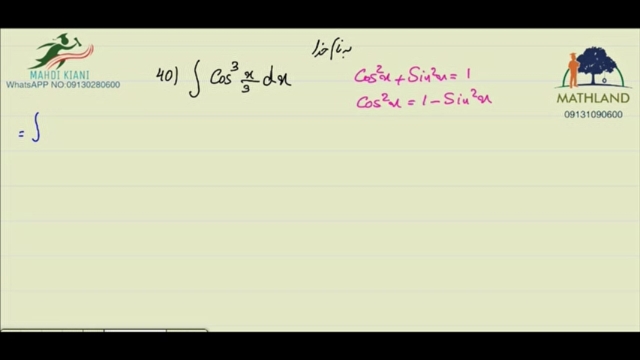 به نام خدا
MAHDI KIANI
WhatsAPP NO 09130280600
40) ∫ Cos³ x/3 dx
Cos²x + Sin²x = 1
Cos²x = 1 − Sin²x
MATHLAND
09131090600
= ∫